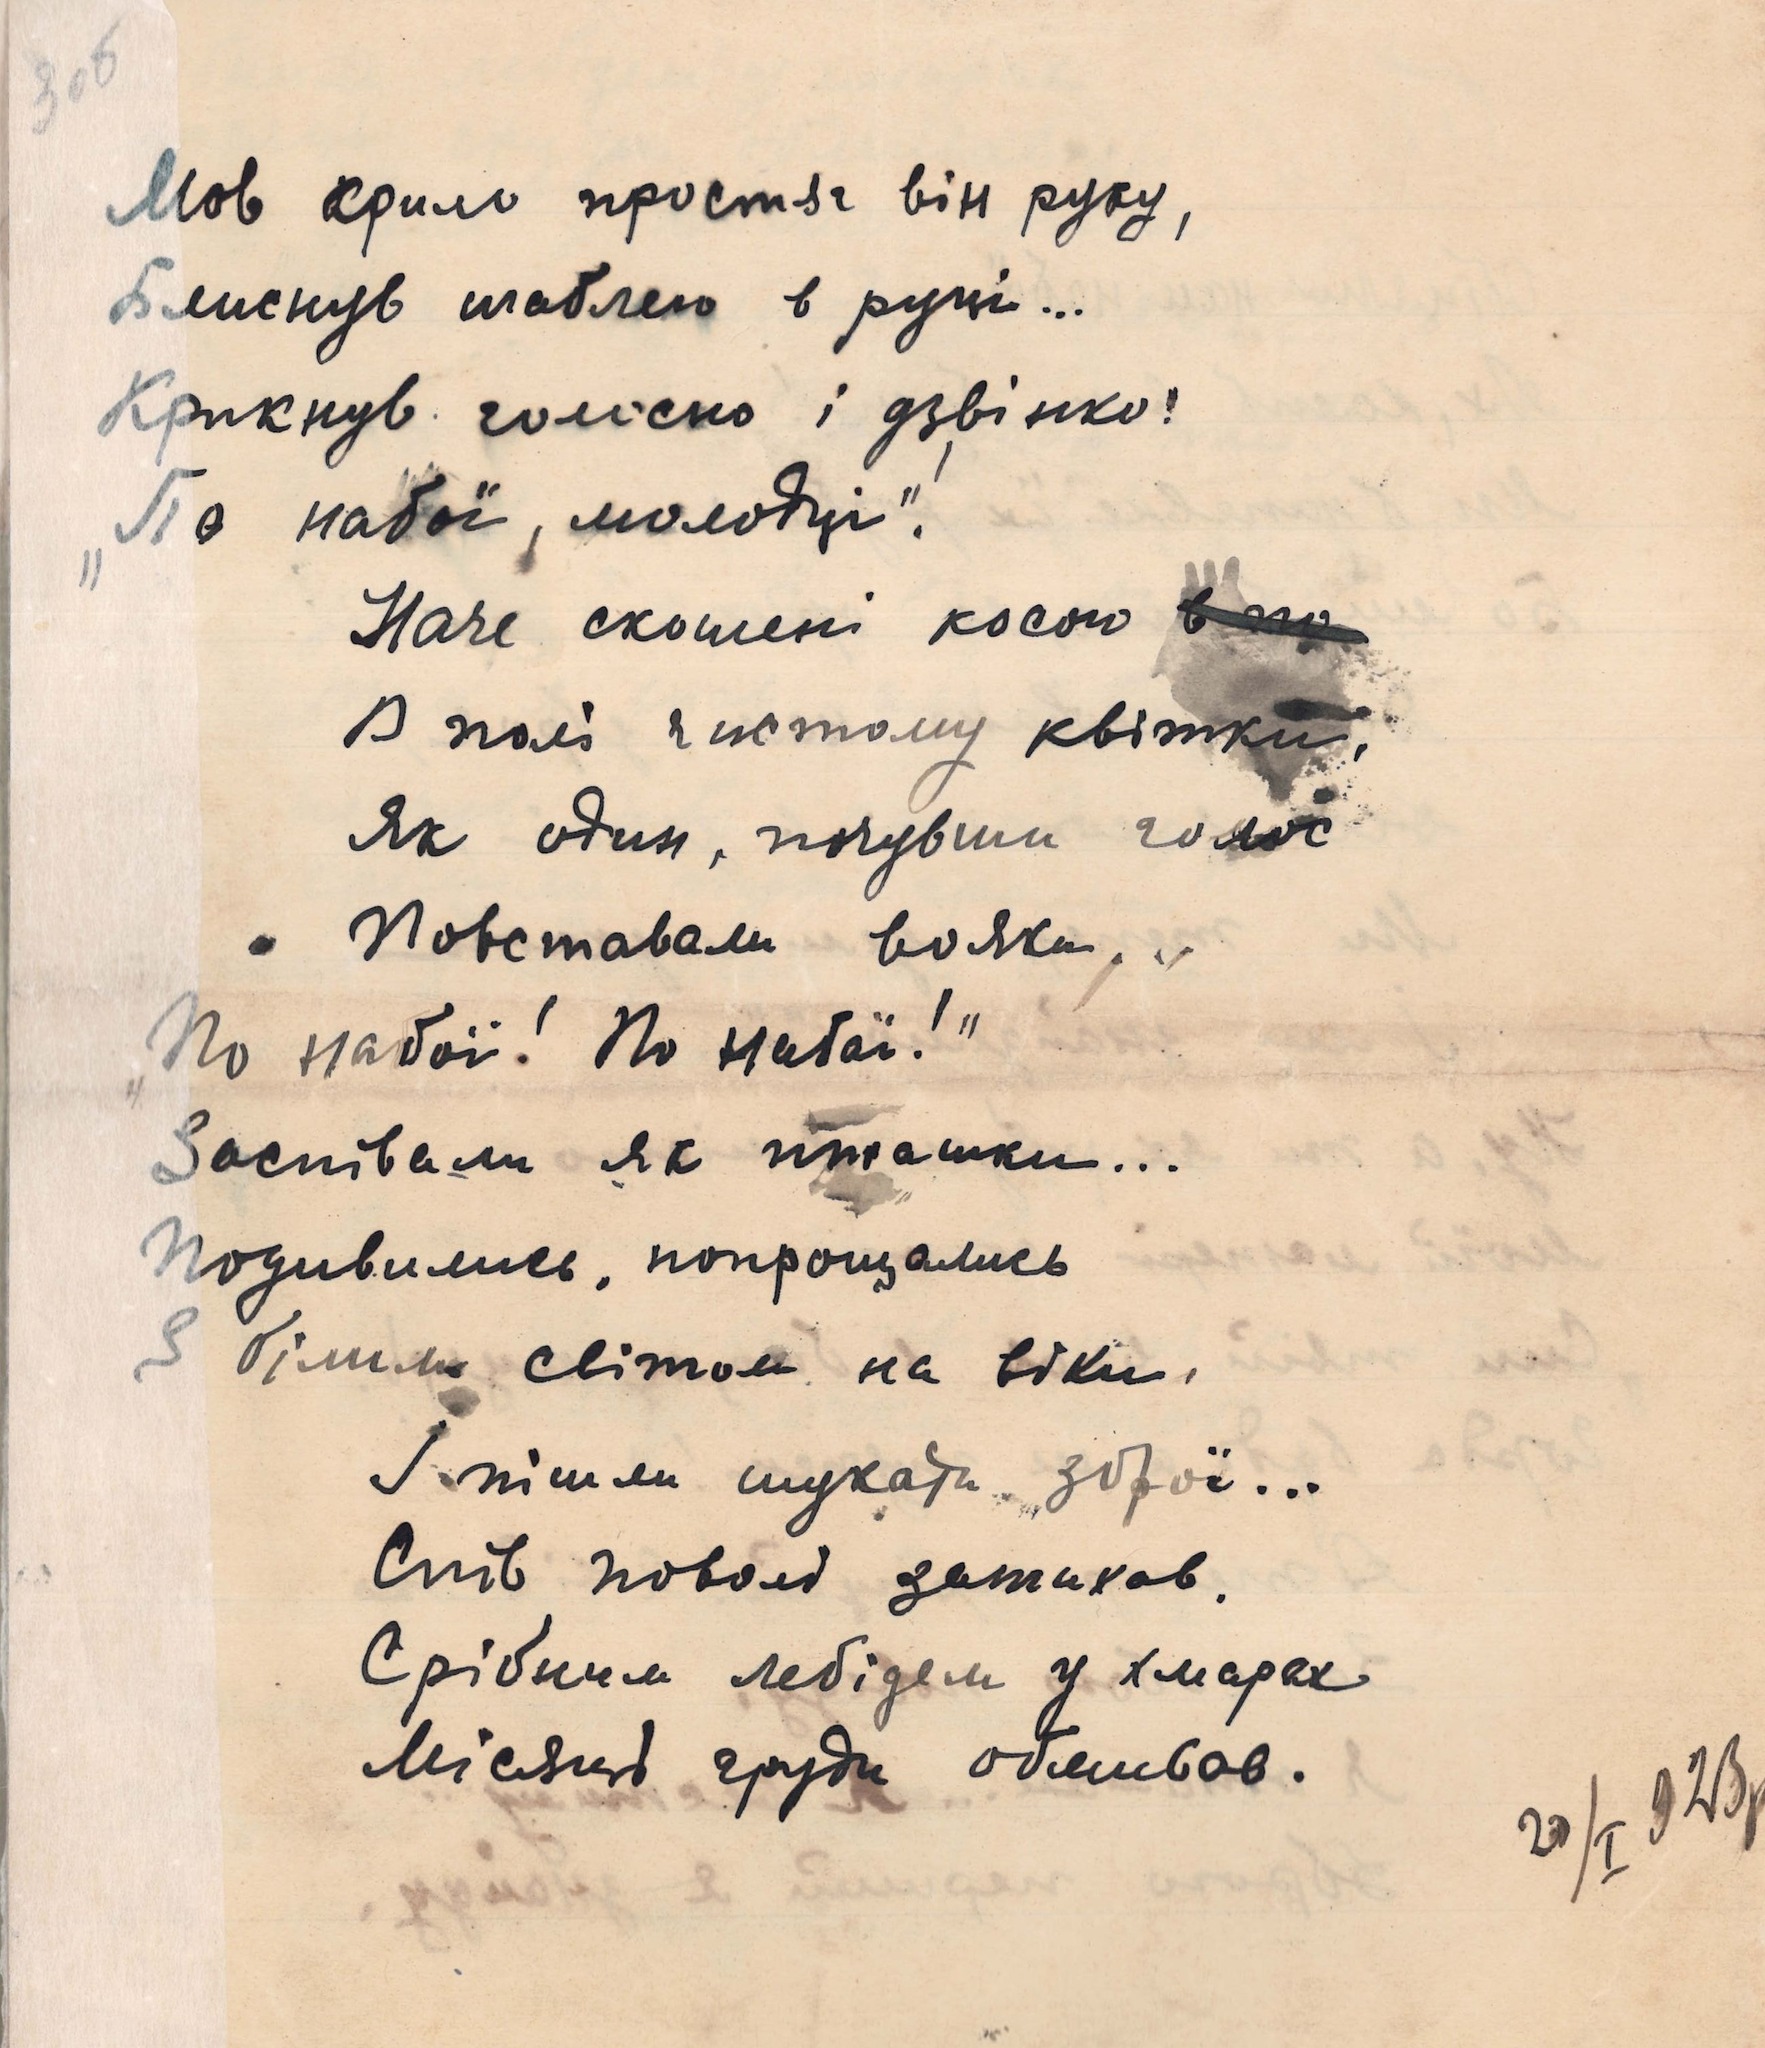 30б
Мов крило простяг він руку,
Блиснув шаблею в руці...
Крикнув голосно і дзвінко:
„По набої, молодці"!
Наче скошені косою в по
В полі чистому квітки,
Як один, почувши голос
Повставали вояки,
„По набої! По набої!"
Заспівали як пташки...
Подивились, попрощались
З білим світом на віки,
І пішли шукати зброї...
Спів поволі затихав.
Срібним лебідем у хмарах
Місяць груди обмивав.
20/I 923р